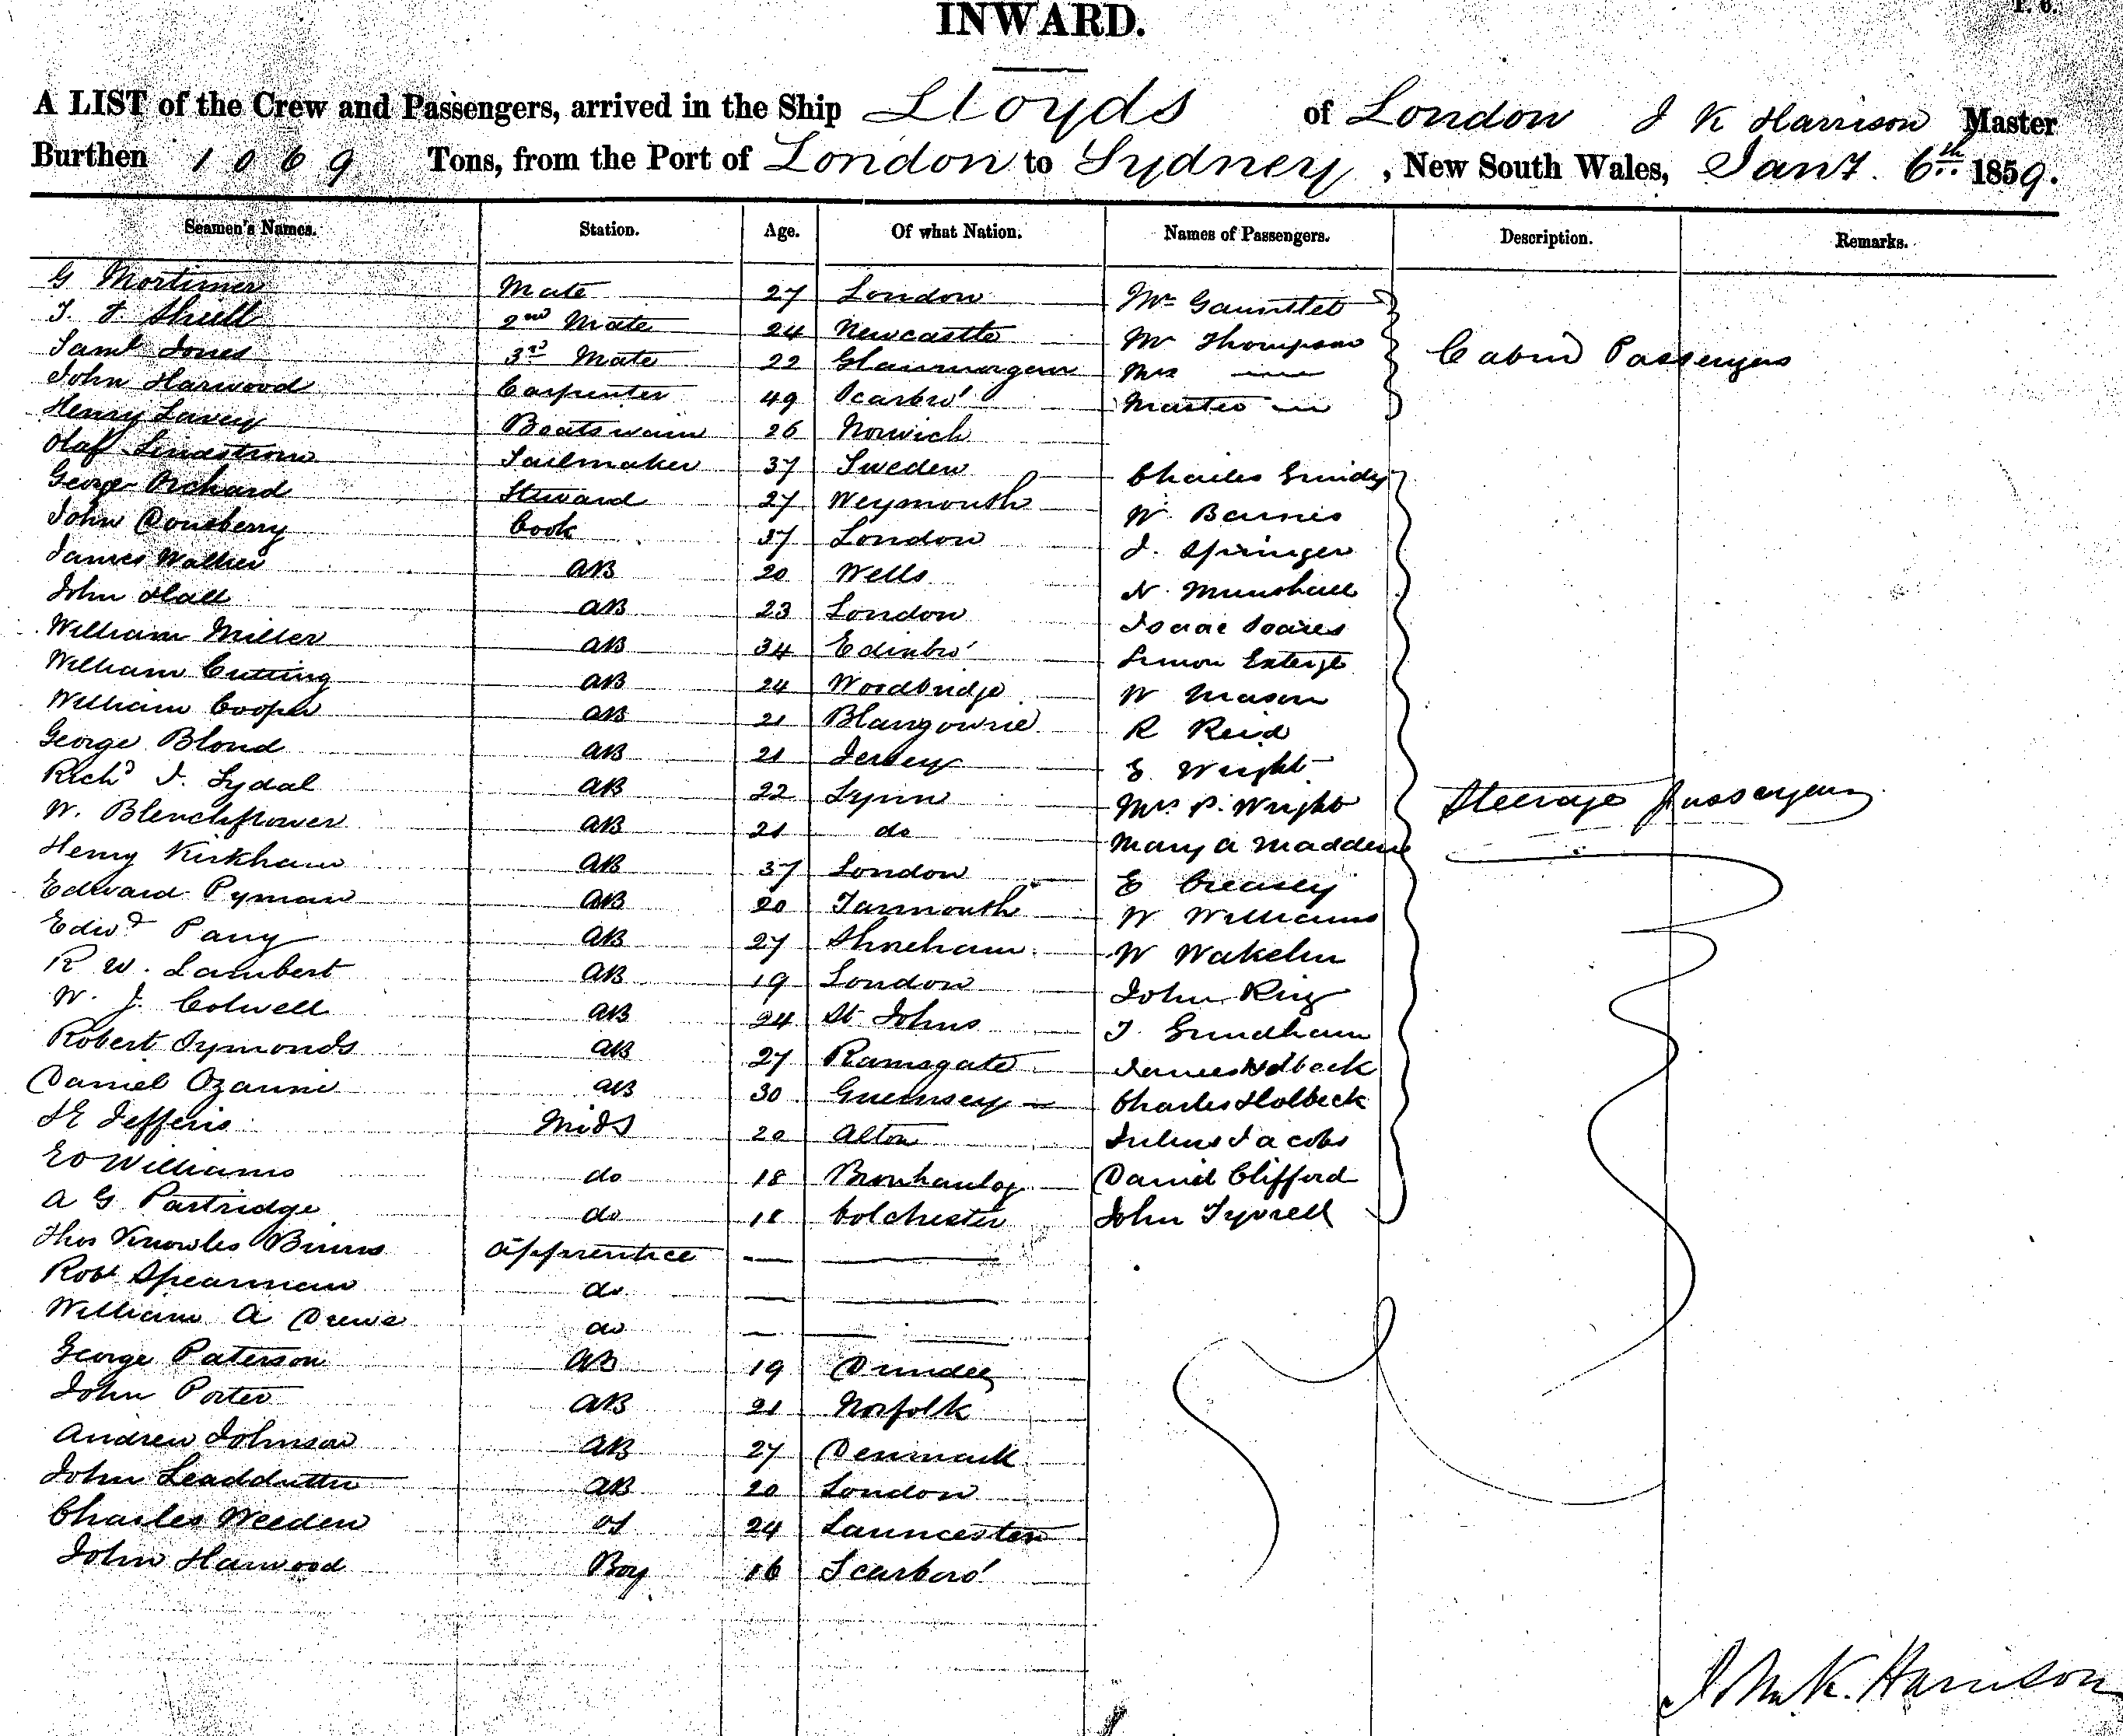 INWARD.
A LIST of the Crew and Passengers, arrived in the Ship Lloyds of London J K Harrison Master
Burthen 1069 Tons, from the Port of London to Sydney, New South Wales, Jany. 6th 1859.
Seamen's Names. Station. Age. Of what Nation. Names of Passengers. Description. Remarks.
G Mortimer Mate 27 London Mr Gauntlet
2nd Mate 24 Newcastle Mr Thompson
Saml Jones 3rd Mate 22 Glanmorgan Mrs — Cabin Passengers
John Harwood Carpenter 49 Scarbro' Master —
Henry Lavey Boatswain 26 Norwich
Olaf Lindstrom Sailmaker 37 Sweden Charles Grindy
George Orchard Steward 27 Weymouth W. Barnes
John Cook 37 London J. Springer
James Walker AB 20 Wells N. Munshall
John Hall AB 23 London Isaac Soares
William Miller AB 34 Edinbro' Simon
William Cutting AB 24 Woodbridge W Mason
William Cooper AB 21 Blargownie R Reid
George Blond AB 21 Jersey E. Wright
Richd J. Sydal AB 22 Lynn Mrs P. Wright Steerage Passengers
W. Blenchflower AB 21 do Mary A Maddern
Henry Kirkham AB 37 London E Creasey
Edward Pyman AB 20 Yarmouth W Williams
Edwd Parry AB 27 Shoreham W Wakelin
R W. Lambert AB 19 London John Ring
W. J. Colwell AB 24 St Johns T. Grundham
Robert Symonds AB 27 Ramsgate James Holbeck
Daniel Ozanne AB 30 Guernsey Charles Holbeck
Jefferis Mids 20 Alton Julius Jacobs
Ed Williams do 18 Daniel Clifford
A G Partridge do 18 Colchester John Tyrrell
Thos Knowles Binns Apprentice — —
Robt Spearman do — —
William A Drewe do — —
George Paterson AB 19 Dundee
John Porter AB 21 Norfolk
Andrew Johnson AB 27 Denmark
John AB 20 London
Charles Weeden OS 24 Launceston
John Harwood Boy 16 Scarboro'
John K. Harrison